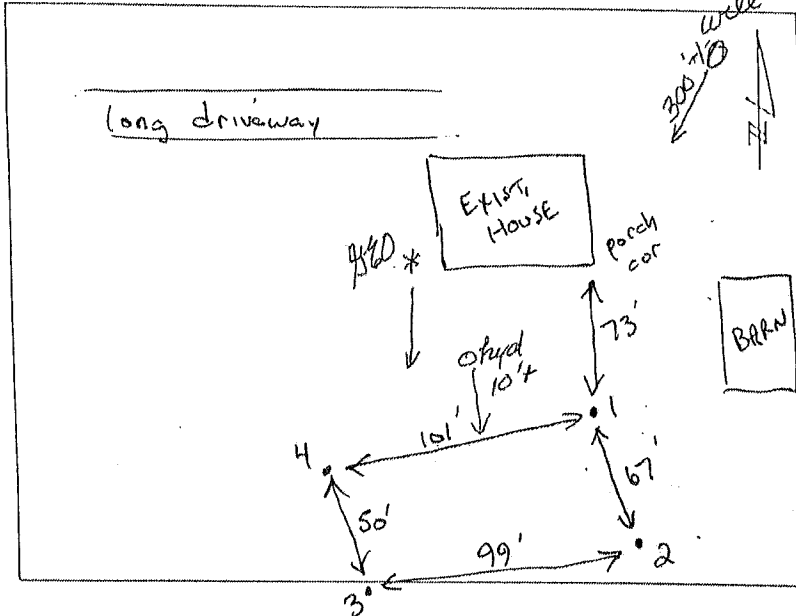 well
300'+/-
N
long driveway
EXIST.
HOUSE
porch
cor
73'
BARN
hyd
10'+
101'
1
4
67'
50'
99'
2
3